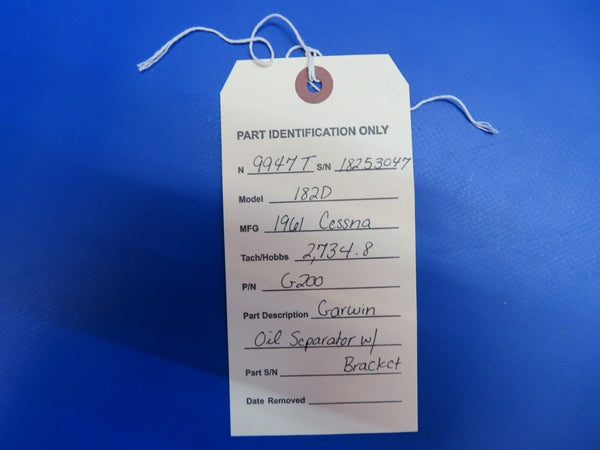 PART IDENTIFICATION ONLY
N 9947T S/N 18253047
Model 182D
MFG 1961 Cessna
Tach/Hobbs 2,734.8
P/N G200
Part Description Garwin
Oil Separator w/
Bracket
Part S/N
Date Removed